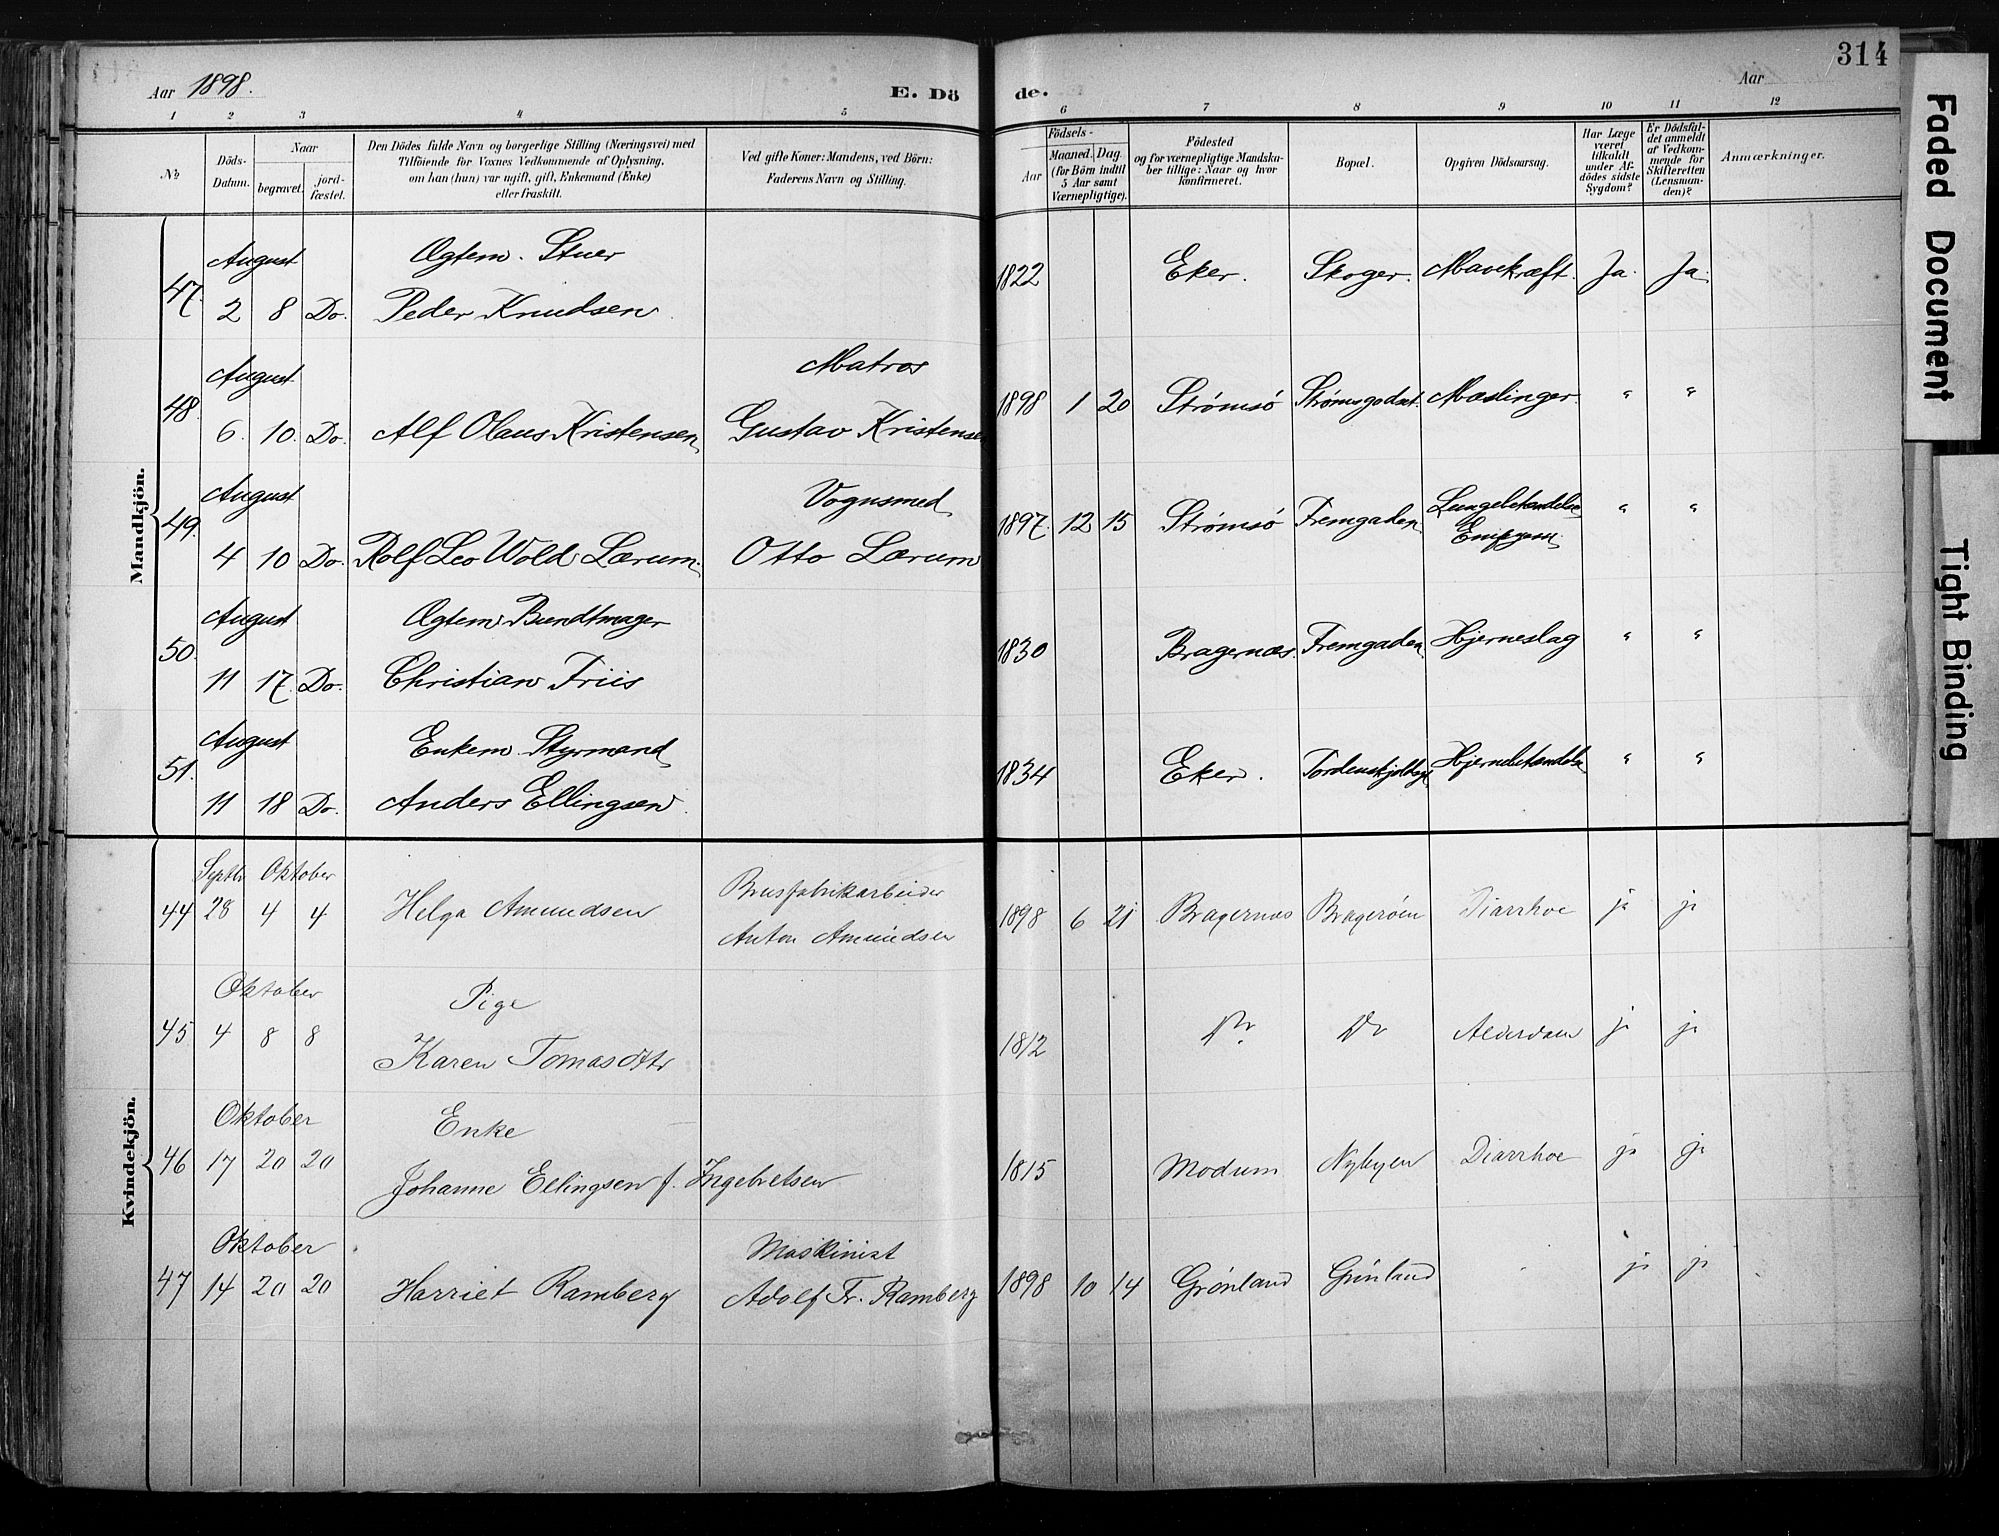 314
Aar 1898.
E. Dö
de.
Aar
1 2 3 4 5
6 7 8 9 10 11 12
№
Döds-
Datum.
Naar
begravet.
jord-
fæstet.
Den Dödes fulde Navn og borgerlige Stilling (Næringsvei) med
Tilföiende for Voxnes Vedkommende af Oplysning,
om han (hun) var ugift, gift, Enkemand (Enke)
eller fraskilt.
Ved gifte Koner: Mandens, ved Börn:
Faderens Navn og Stilling.
Födsels-
Aar
Maaned. Dag.
(for Börn indtil
5 Aar samt
Værnepligtige).
Födested
og for værnepligtige Mandska-
ber tillige: Naar og hvor
konfirmeret.
Bopæl.
Opgiven Dödsaarsag.
Har Læge
været
tilkaldt
under Af-
dödes sidste
Sygdom?
Er Dödsfal-
det anmeldt
af Vedkom-
mende for
Skifteretten
(Lensman-
den)?
Anmærkninger.
Mandkjön.
August Ægtem. Stuer
47. 2 8 Do. Peder Knudsen 1822 Eker. Skoger. Mavekræft. Ja. Ja.
August Matros
48. 6. 10. Do. Alf Olaus Kristensen Gustav Kristensen 1898 1 20 Strømsø Strømsgodset. Mæslinger. " "
August Vognsmed
49. 4 10 Do. Rolf Leo Wold Lærum. Otto Lærum 1897. 12 15 Strømsø Fremgaden Lungebetændelse " "
August Ægtem. Bundtmager
50. 11 17. Do. Christian Friis 1830 Bragernæs. Fremgaden Hjerneslag " "
August Enkem. Styrmand
51. 11 18 Do. Anders Ellingsen. 1834 Eker. Hjernebetændelse " "
Kvindekjön.
Septbr Oktober
44 28 4 4 Helga Amundsen Brusfabrikarbeider
Anton Amundsen 1898 6 21 Bragernæs Bragerøen Diarrhoe ja ja
Oktober Pige
45 4 8 8 Karen Tomasdttr 1812 Do Do Alderdom ja ja
Oktober Enke
46 17 20 20 Johanne Ellingsen f. Ingebretsen 1815 Modum Nybyen Diarrhoe ja ja
Oktober Maskinist
47 14 20 20 Harriet Ramberg Adolf Fr. Ramberg 1898 10 14 Grønland Grønland ja ja
Faded Document
Tight Binding